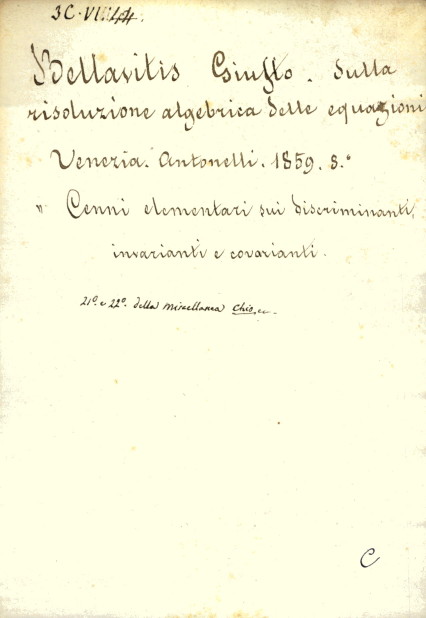 3C·VIII
Bellavitis Giusto. Sulla
risoluzione algebrica delle equazioni
Venezia. Antonelli. 1859. 8.°
" Cenni elementari sui discriminanti,
invarianti e covarianti.
21° e 22° della Miscellanea
C